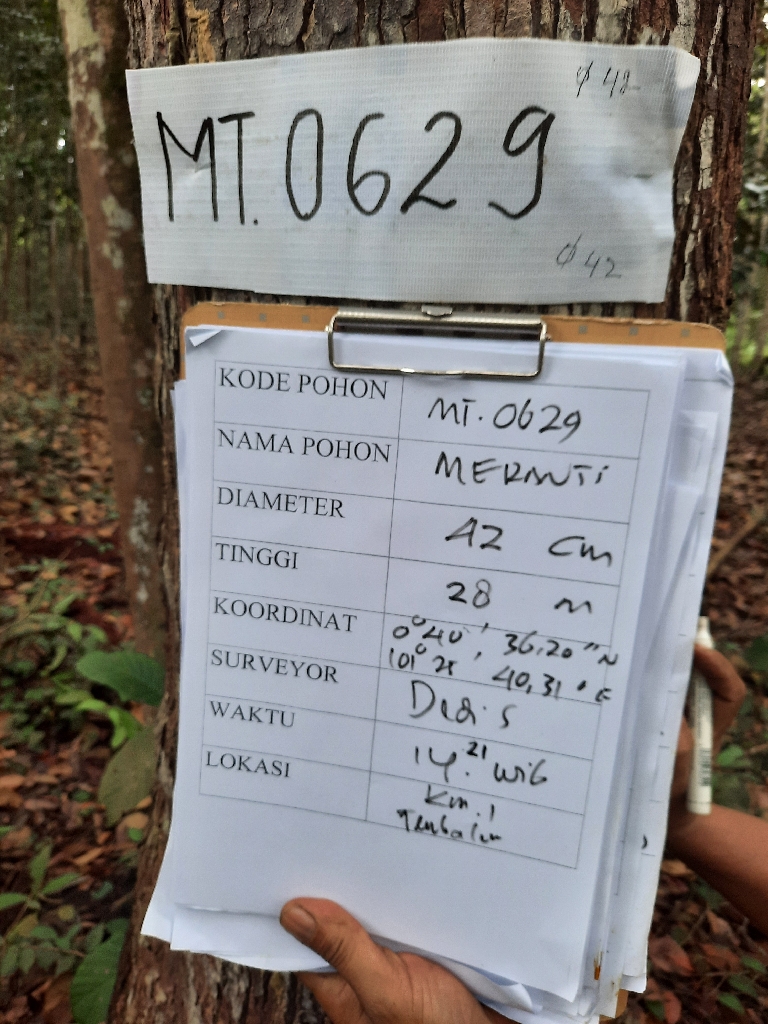 φ 42
MT.0629
φ 42
KODE POHON MT.0629
NAMA POHON MERANTi
DIAMETER 42 Cm
TINGGI 28 m
KOORDINAT 0° 40', 36,20" N
101° 28' 40,31" E
SURVEYOR
WAKTU 14.21 WiB
LOKASI Km.1